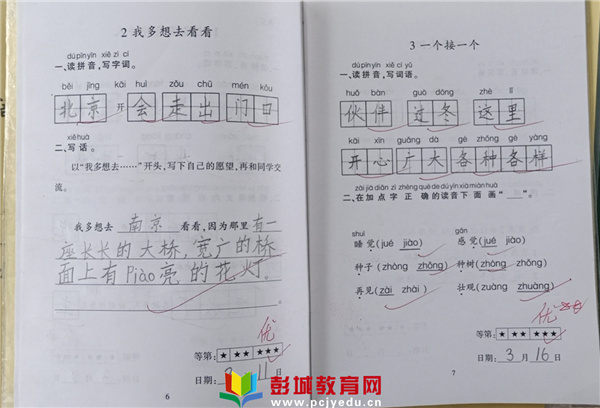 2 我多想去看看
dú pīn yīn xiě zì cí
一、读拼音,写字词。
běi jīng kāi huì zǒu chū mén kǒu
北京 开会 走出 门口
xiě huà
二、写话。
以“我多想去……”开头,写下自己的愿望,再和同学交
流。
我多想去 南京 看看,因为那里有一
座长长的大桥,宽广的桥
面上有Piào亮的花灯。
优
等第: ★ ★★ ★★★
日期: 11 日
6
3 一个接一个
dú pīn yīn xiě cí yǔ
一、读拼音,写词语。
huǒ bàn guò dōng zhè lǐ
伙伴 过冬 这里
kāi xīn guǎng dà gè zhǒng gè yàng
开心 广大 各种各样
zài jiā diǎn zì zhèng què de dú yīn xià miàn huà
二、在加点字正确的读音下面画“__”。
shuì gǎn
睡觉(jué jiào) 感觉(jué jiào)
种子(zhòng zhǒng) 种树(zhòng zhǒng)
再见(zài zhài) 壮观(zuàng zhuàng)
优
等第: ★ ★★ ★★★
日期: 3 月 16 日
7
彭城教育网
www.pcjyedu.cn